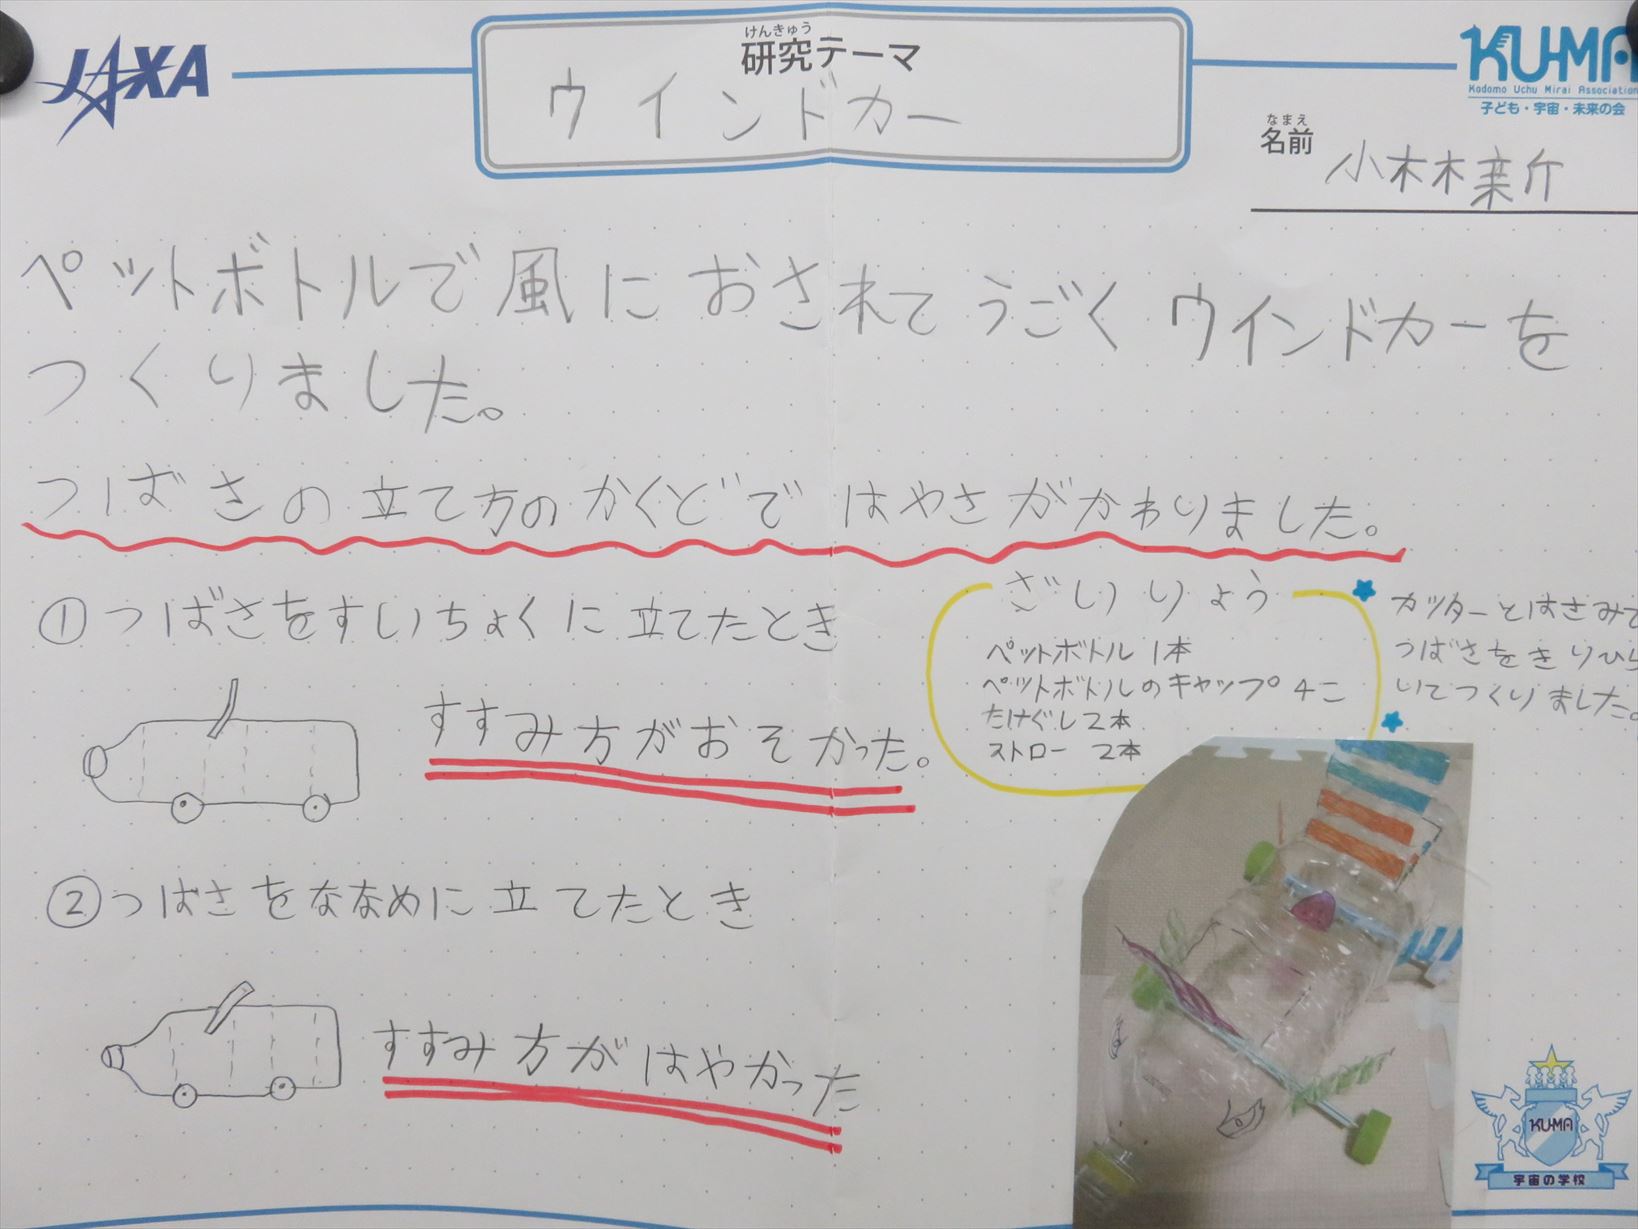 JAXA
けんきゅう
研究テーマ
ウインドカー
KU-MA
Kodomo Uchu Mirai Association
子ども・宇宙・未来の会
なまえ
名前
小林木葉介
ペットボトルで風におされてうごくウインドカーを
つくりました。
つばさの立て方のかくどではやさがかわりました。
①つばさをすいちょくに立てたとき
すすみ方がおそかった。
②つばさをななめに立てたとき
すすみ方がはやかった
ざいりょう
ペットボトル 1本
ペットボトルのキャップ 4こ
たけぐし2本
ストロー 2本
カッターとはさみで
つばさをきりひら
いてつくりました。
KU-MA
宇宙の学校